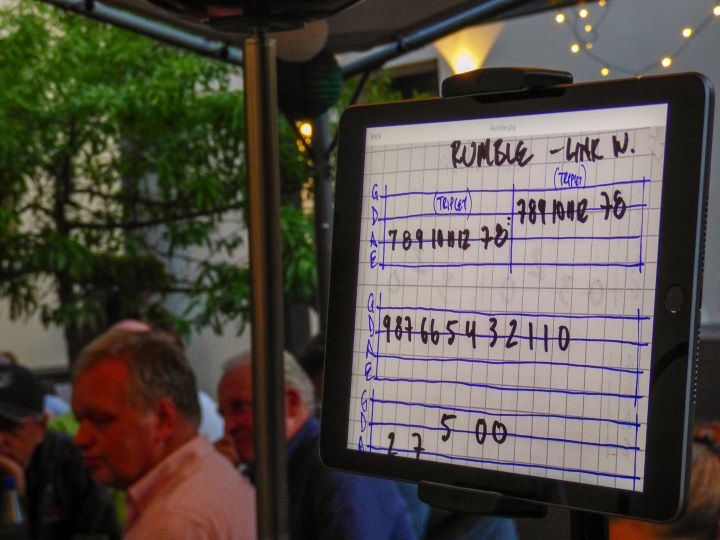 BACK Rumble.jpg
RUMBLE - LINK W.
(TRIPLET)
G (TRIPLET)
D 7 8 9 10 11 12 7 8
A 7 8 9 10 11 12 7 8
E
G
D 9 8 7 6 6 5 4 3 2 1 1 0
A
E
G
D 5 0 0
A 2 7